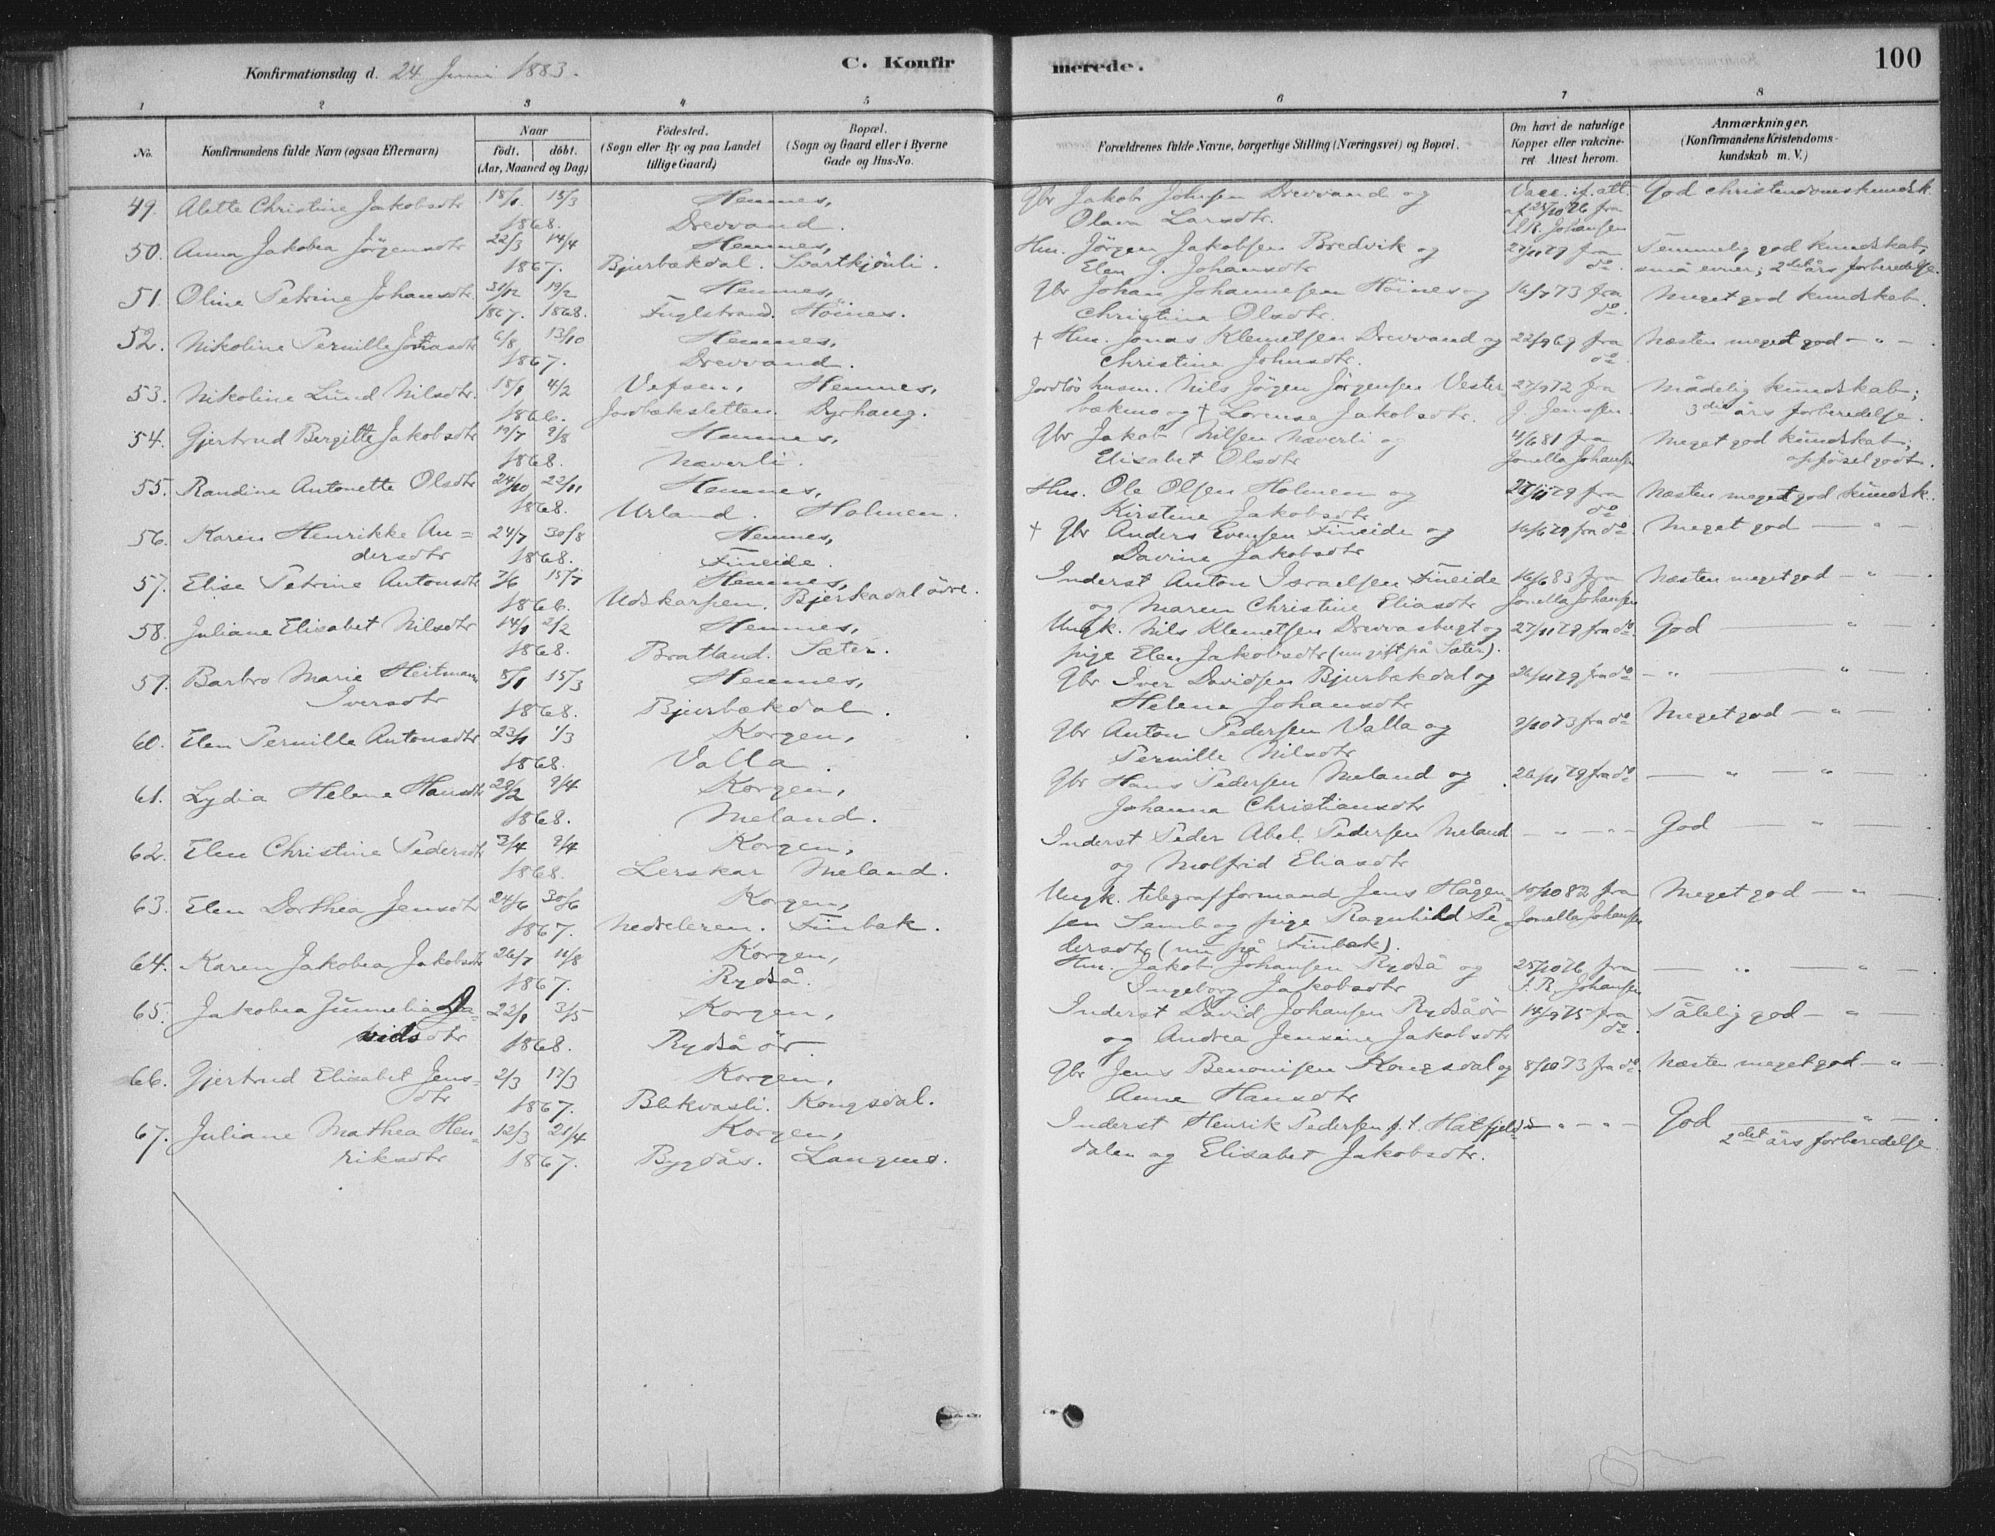 Konfirmationsdag d. 24 Juni 1883.
C. Konfirmerede.
100
1 2 3 4 5 6 7 8
No. Konfirmandens fulde Navn (ogsaa Efternavn) Naar født. døbt. (Aar, Maaned og Dag) Fødested. (Sogn eller By og paa Landet tillige Gaard) Bopæl. (Sogn og Gaard eller i Byerne Gade og Hus-No. Forældrenes fulde Navne, borgerlige Stilling (Næringsvei) og Bopæl. Om havt de naturlige Kopper eller vakcineret Attest herom. Anmærkninger. (Konfirmandens Kristendomskundskab m. V.)
49. Alette Christine Jakobsdtr 18/1 15/3 Hemnes, Gbr Jakob Johnsen Drevvand og Vacc. if. att. God christendomskundsk.
1868. Drevvand. Olava Larsdtr. af 25/10 76 fra J. R. Johansen
50. Anna Jakobea Jørgensdtr 22/3 14/4 Hemnes, Hm. Jørgen Jakobsen Bredvik og 27/11 79 fra Temmelig god kundskab,
1867. Bjurbækdal. Svartkjønli. Elen J. Johansdtr do. små evner; 2det års forberedelse.
51. Oline Petrine Johansdtr. 31/12 19/2 Hemnes, Gbr Johan Johannesen Höines og 16/7 73 fra Meget god kundskab.
1867. 1868. Fuglstrand. Höines. Christine Olsdtr. do.
52. Nikoline Pernille Jonasdtr 6/8 13/10 Hemnes, † Hm. Jonas Klemetsen Drevvand og 22/9 69 fra Næsten meget god — " —
1867. Drevvand. Christine Johnsdtr. do.
53. Nikoline Lund Nilsdtr. 18/1 4/2 Vefsen, Hemnes, Jordløs husm. Nils Jörgen Jørgensen Vester 27/9 72 fra Mådelig kundskab;
1866. Jordbæksletten. Dyrhaug. bækmo og † Lorense Jakobsdtr. J. Jenssen. 3die års forberedelse.
54. Gjertrud Bergitte Jakobsdtr 19/7 9/8 Hemnes, Gbr Jakob Nilsen Næverli og 4/6 81 fra Meget god kundskab;
1868. Næverli. Elisabet Olsdtr Jonella Johansen opförsel godt.
55. Randine Antonette Olsdtr 24/10 22/11 Hemnes, Hm. Ole Olsen Holmen og 27/11 79 fra Næsten meget god kundsk.
1868. Urland. Holmen. Kirstine Jakobsdtr do
56. Karen Henrikke An- 24/7 30/8 Hemnes, † Gbr Anders Evensen Fineide og 16/6 79 fra do. Meget god — " —
dersdtr 1868. Fineide. Davine Jakobsdtr
57. Elise Petrine Antonsdtr 7/6 15/7 Hemnes, Inderst Anton Israelsen Fineide 16/6 83 fra Næsten meget god — " —
1866. Udskarpen. Bjerkadal övre. og Maren Christine Eliasdtr Jonella Johansen
58. Juliane Elisabet Nilsdtr 14/1 2/2 Hemnes, Ungk. Nils Klemetsen Drevvasbugt og 27/11 79 fra do. God — " —
1868. Bratland. Sæter. pige Elen Jakobsdtr (nu gift på Sæter).
59. Barbro Marie Heitmann 8/1 15/3 Hemnes, Gbr Iver Davidsen Bjurbækdal og 26/11 79 fra do — " — " —
Iversdtr 1868. Bjurbækdal. Helena Johansdtr
60. Elen Pernille Antonsdtr 23/1 1/3 Korgen, Gbr Anton Pedersen Valla og 9/10 73 fra do Meget god — " —
1868. Valla. Pernille Nilsdtr
61. Lydia Helene Hansdtr 29/2 9/4 Korgen, Gbr Hans Pedersen Meland og 26/11 79 fra do — " — " —
1868. Meland. Johanna Christiansdtr
62. Elen Christine Pedersdtr 3/4 9/4 Korgen, Inderst Peder Abel Pedersen Meland — " — " — God — " —
1868. Lerskar Meland. og Molfrid Eliasdtr
63. Elen Dorthea Jensdtr 24/6 30/6 Korgen, Ungk. telegrafformand Jens Hågen- 10/10 82 fra Meget god — " —
1867. Nedreleren. Finbak. sen Semb og pige Ragnhild Pe- Jonella Johansen
dersdtr (nu på Finbak).
64. Karen Jakobea Jakobsdtr 26/7 11/8 Korgen, Hm. Jakob Johansen Rydså og 25/10 76 fra — " — " —
1867. Rydså. Ingeborg Jakobsdtr J. R. Johansen
65. Jakobea Gunnelia Da- 22/1 3/5 Korgen, Inderst David Johansen Rydsåör 14/9 75 fra Tålelig god — " —
vidsdtr 1868. Rydsåör. og Andrea Jensine Jakobsdtr do
66. Gjertrud Elisabet Jens- 2/3 12/3 Korgen, Gbr Jens Benonisen Kongsdal og 8/10 73 fra do. Næsten meget god — " —
dtr 1867. Blekvasli. Kongsdal. Anne Hansdtr
67. Juliane Mathea Hen- 12/3 21/4 Korgen, Inderst Henrik Pedersen f. t. Hatfjeld- — " — " — God — " —
riksdtr 1867. Bygdås. Langnes. dalen og Elisabet Jakobsdtr. 2det års forberedelse.